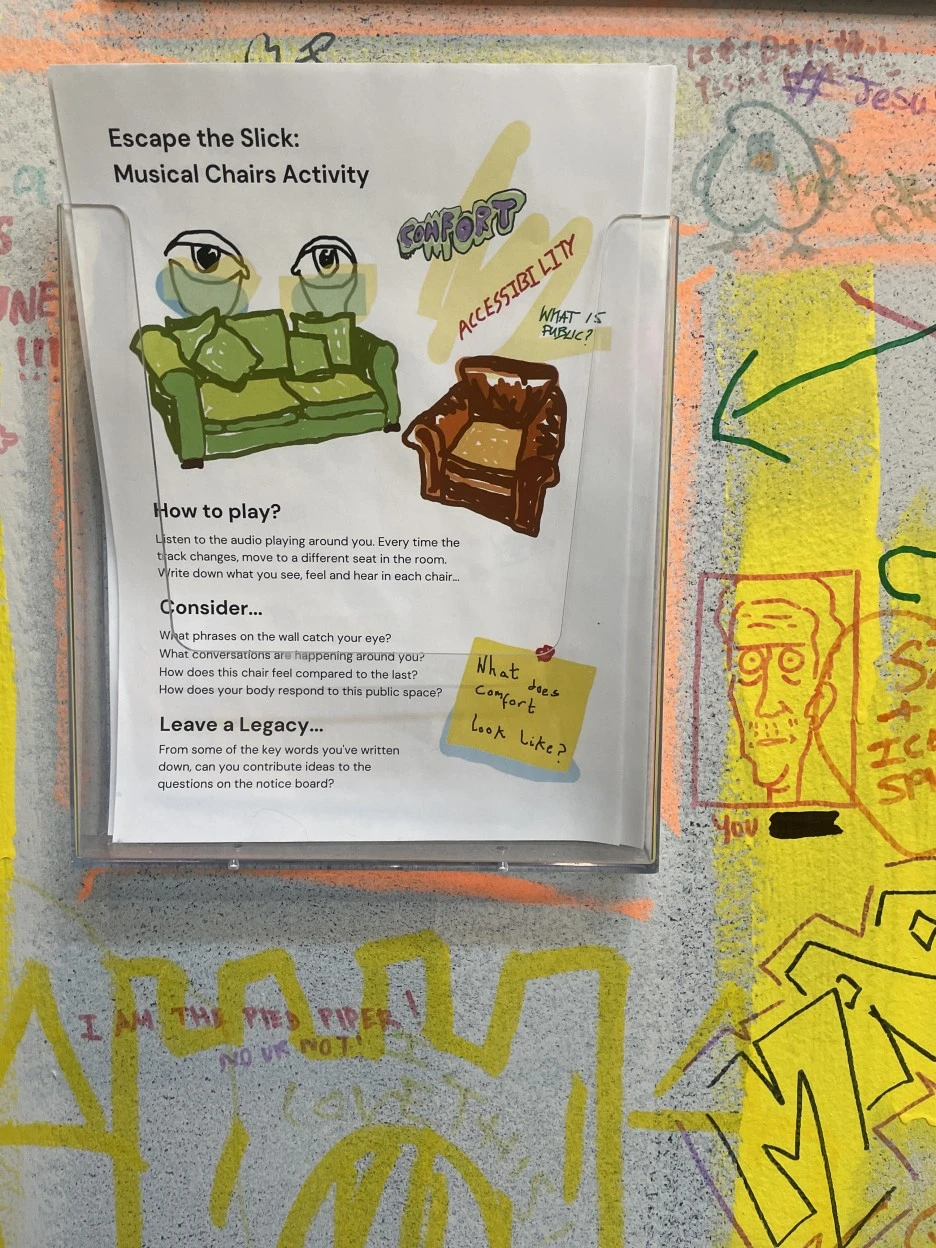 # Jesu
Escape the Slick:
Musical Chairs Activity
COMFORT
ACCESSIBILITY
WHAT IS
PUBLIC?
!!!
How to play?
Listen to the audio playing around you. Every time the
track changes, move to a different seat in the room.
Write down what you see, feel and hear in each chair...
Consider...
What phrases on the wall catch your eye?
What conversations are happening around you?
How does this chair feel compared to the last?
How does your body respond to this public space?
What does
Comfort
Look Like?
Leave a Legacy...
From some of the key words you've written
down, can you contribute ideas to the
questions on the notice board?
YOU
I AM THE PIED PIPER!
NO UR NOT!
LOVE